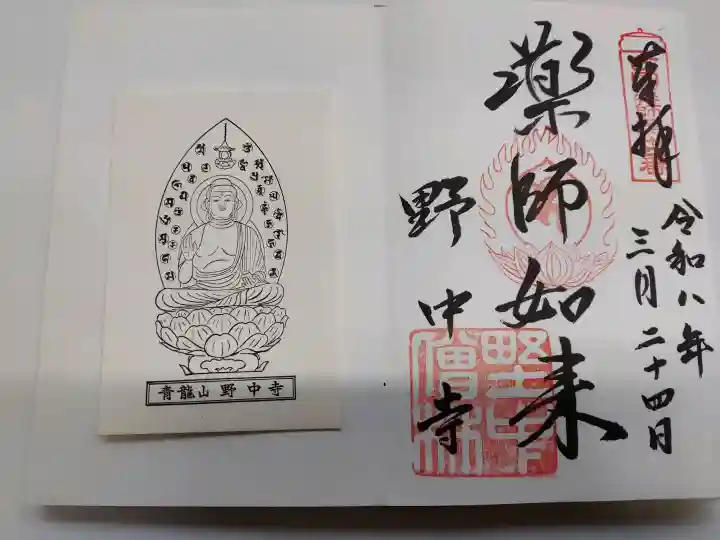 奉拝
令和八年
三月二十四日
薬師如来
野中寺
青龍山 野中寺